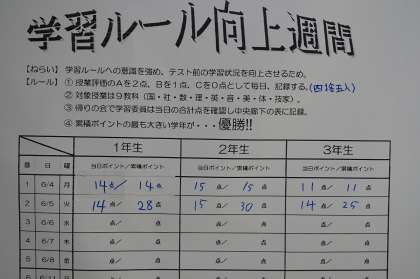 学習ルール向上週間
【ねらい】 学習ルールへの意識を強め、テスト前の学習状況を向上させるため。
【ルール】 ① 授業評価のAを2点、Bを1点、Cを0点として毎日、記録する。(四捨五入)
② 対象授業は9教科（国・社・数・理・英・音・美・体・技家）。
③ 帰りの会で学習委員は当日の合計点を確認し中央廊下の表に記録。
④ 累積ポイントの最も大きい学年が・・・優勝!!
1年生 2年生 3年生
番 日 曜 当日ポイント／累積ポイント 当日ポイント／累積ポイント 当日ポイント／累積ポイント
1 6/4 月 14点／ 14点 15点／ 15点 11点／ 11点
2 6/5 火 14点／ 28点 15点／ 30点 14点／ 25点
3 6/6 水 点／ 点 点／ 点 点／ 点
4 6/7 木 点／ 点 点／ 点 点／ 点
5 6/8 金 点／ 点 点／ 点 点／ 点